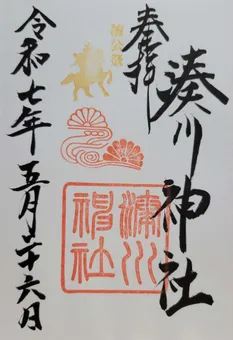 奉拝
湊川神社
楠公祭
湊川神社
令和七年五月二十六月